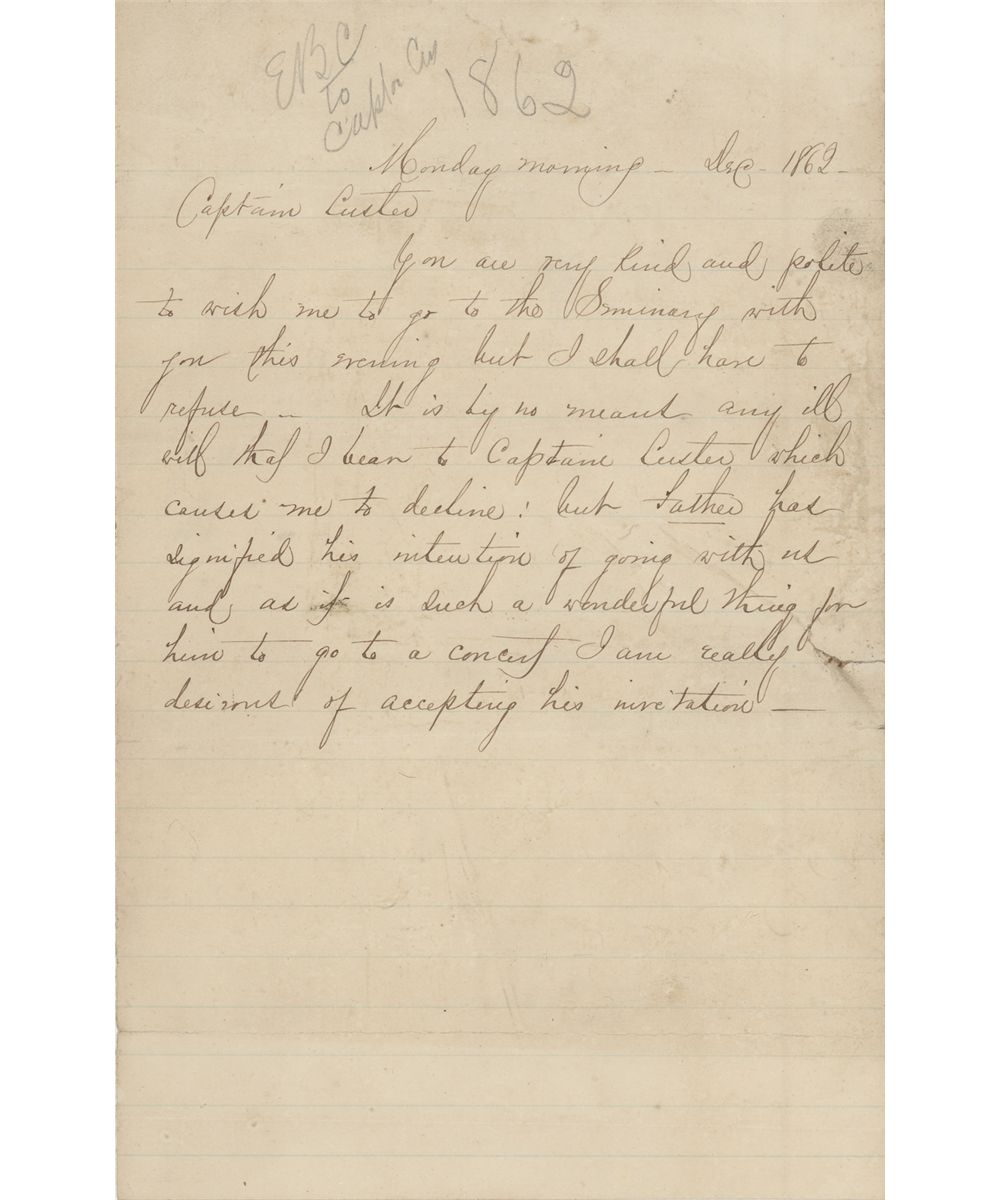 EBC
to
Captn Cus
1862
Monday morning - Dec - 1862 -
Captain Custer
You are very kind and polite
to wish me to go to the Seminary with
you this evening but I shall have to
refuse - It is by no means any ill
will that I bear to Captain Custer which
causes me to decline: but Father has
signified his intention of going with us
and as it is such a wonderful thing for
him to go to a concert I am really
desirous of accepting his invitation —